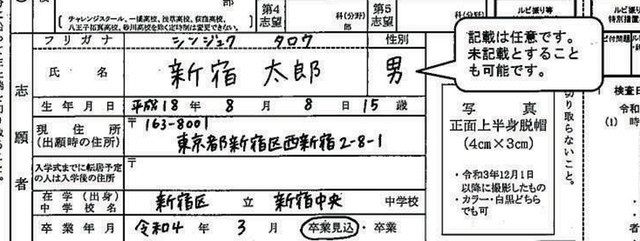 チャレンジスクール、一橋高校、浅草高校、荻窪高校、
八王子拓真高校、砂川高校を除く定時制は変更できない。
第4
志望
科(分野)
第5
志望
科(分野)
ルビ振り等
フリガナ シンジュク タロウ 性別
氏名 新宿 太郎 男
記載は任意です。
未記載とすること
も可能です。
志願者
生年月日 平成18年 8月 8日 15歳
現住所
(出願時の住所)
〒163-8001
東京都新宿区西新宿2-8-1
入学式までに転居予定
の人は入学後の住所
〒
在学(出身)
中学校名
新宿区 立 新宿中央 中学校
卒業年月 令和4年 3月 卒業見込・卒業
写真
正面上半身脱帽
(4cm×3cm)
・令和3年12月1日
以降に撮影したもの
・カラー・白黒どちら
でも可
切り取らないこと。
検査日
令和
(1)
時